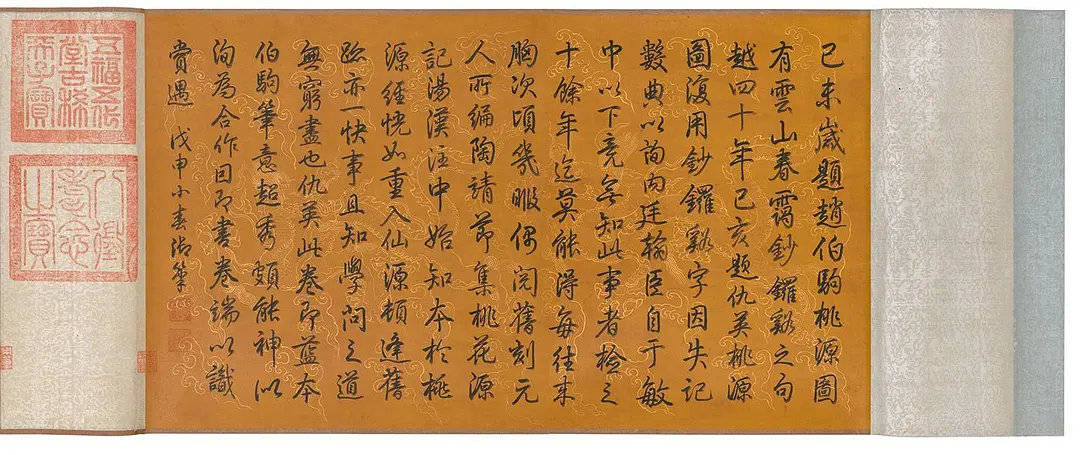 己未歲題趙伯駒桃源圖
有雲山春靄鈔鑼谿之句
越四十年己亥題仇英桃源
圖復用鈔鑼谿字因失記
數典以詢內廷翰臣自于敏
中以下竟無知此事者檢之
十餘年迄莫能得每往來
胸次頃幾暇偶閱舊刻元
人所編陶靖節集桃花源
記湯漢注中始知本於桃
源經恍如重入仙源頓逢舊
跡亦一快事且知學問之道
無窮盡也仇英此卷即藍本
伯駒筆意超秀頗能神似
洵為合作因即書卷端以識
賞遇 戊申小春御筆
五福五代堂古稀天子寶
八徵耄念之寶